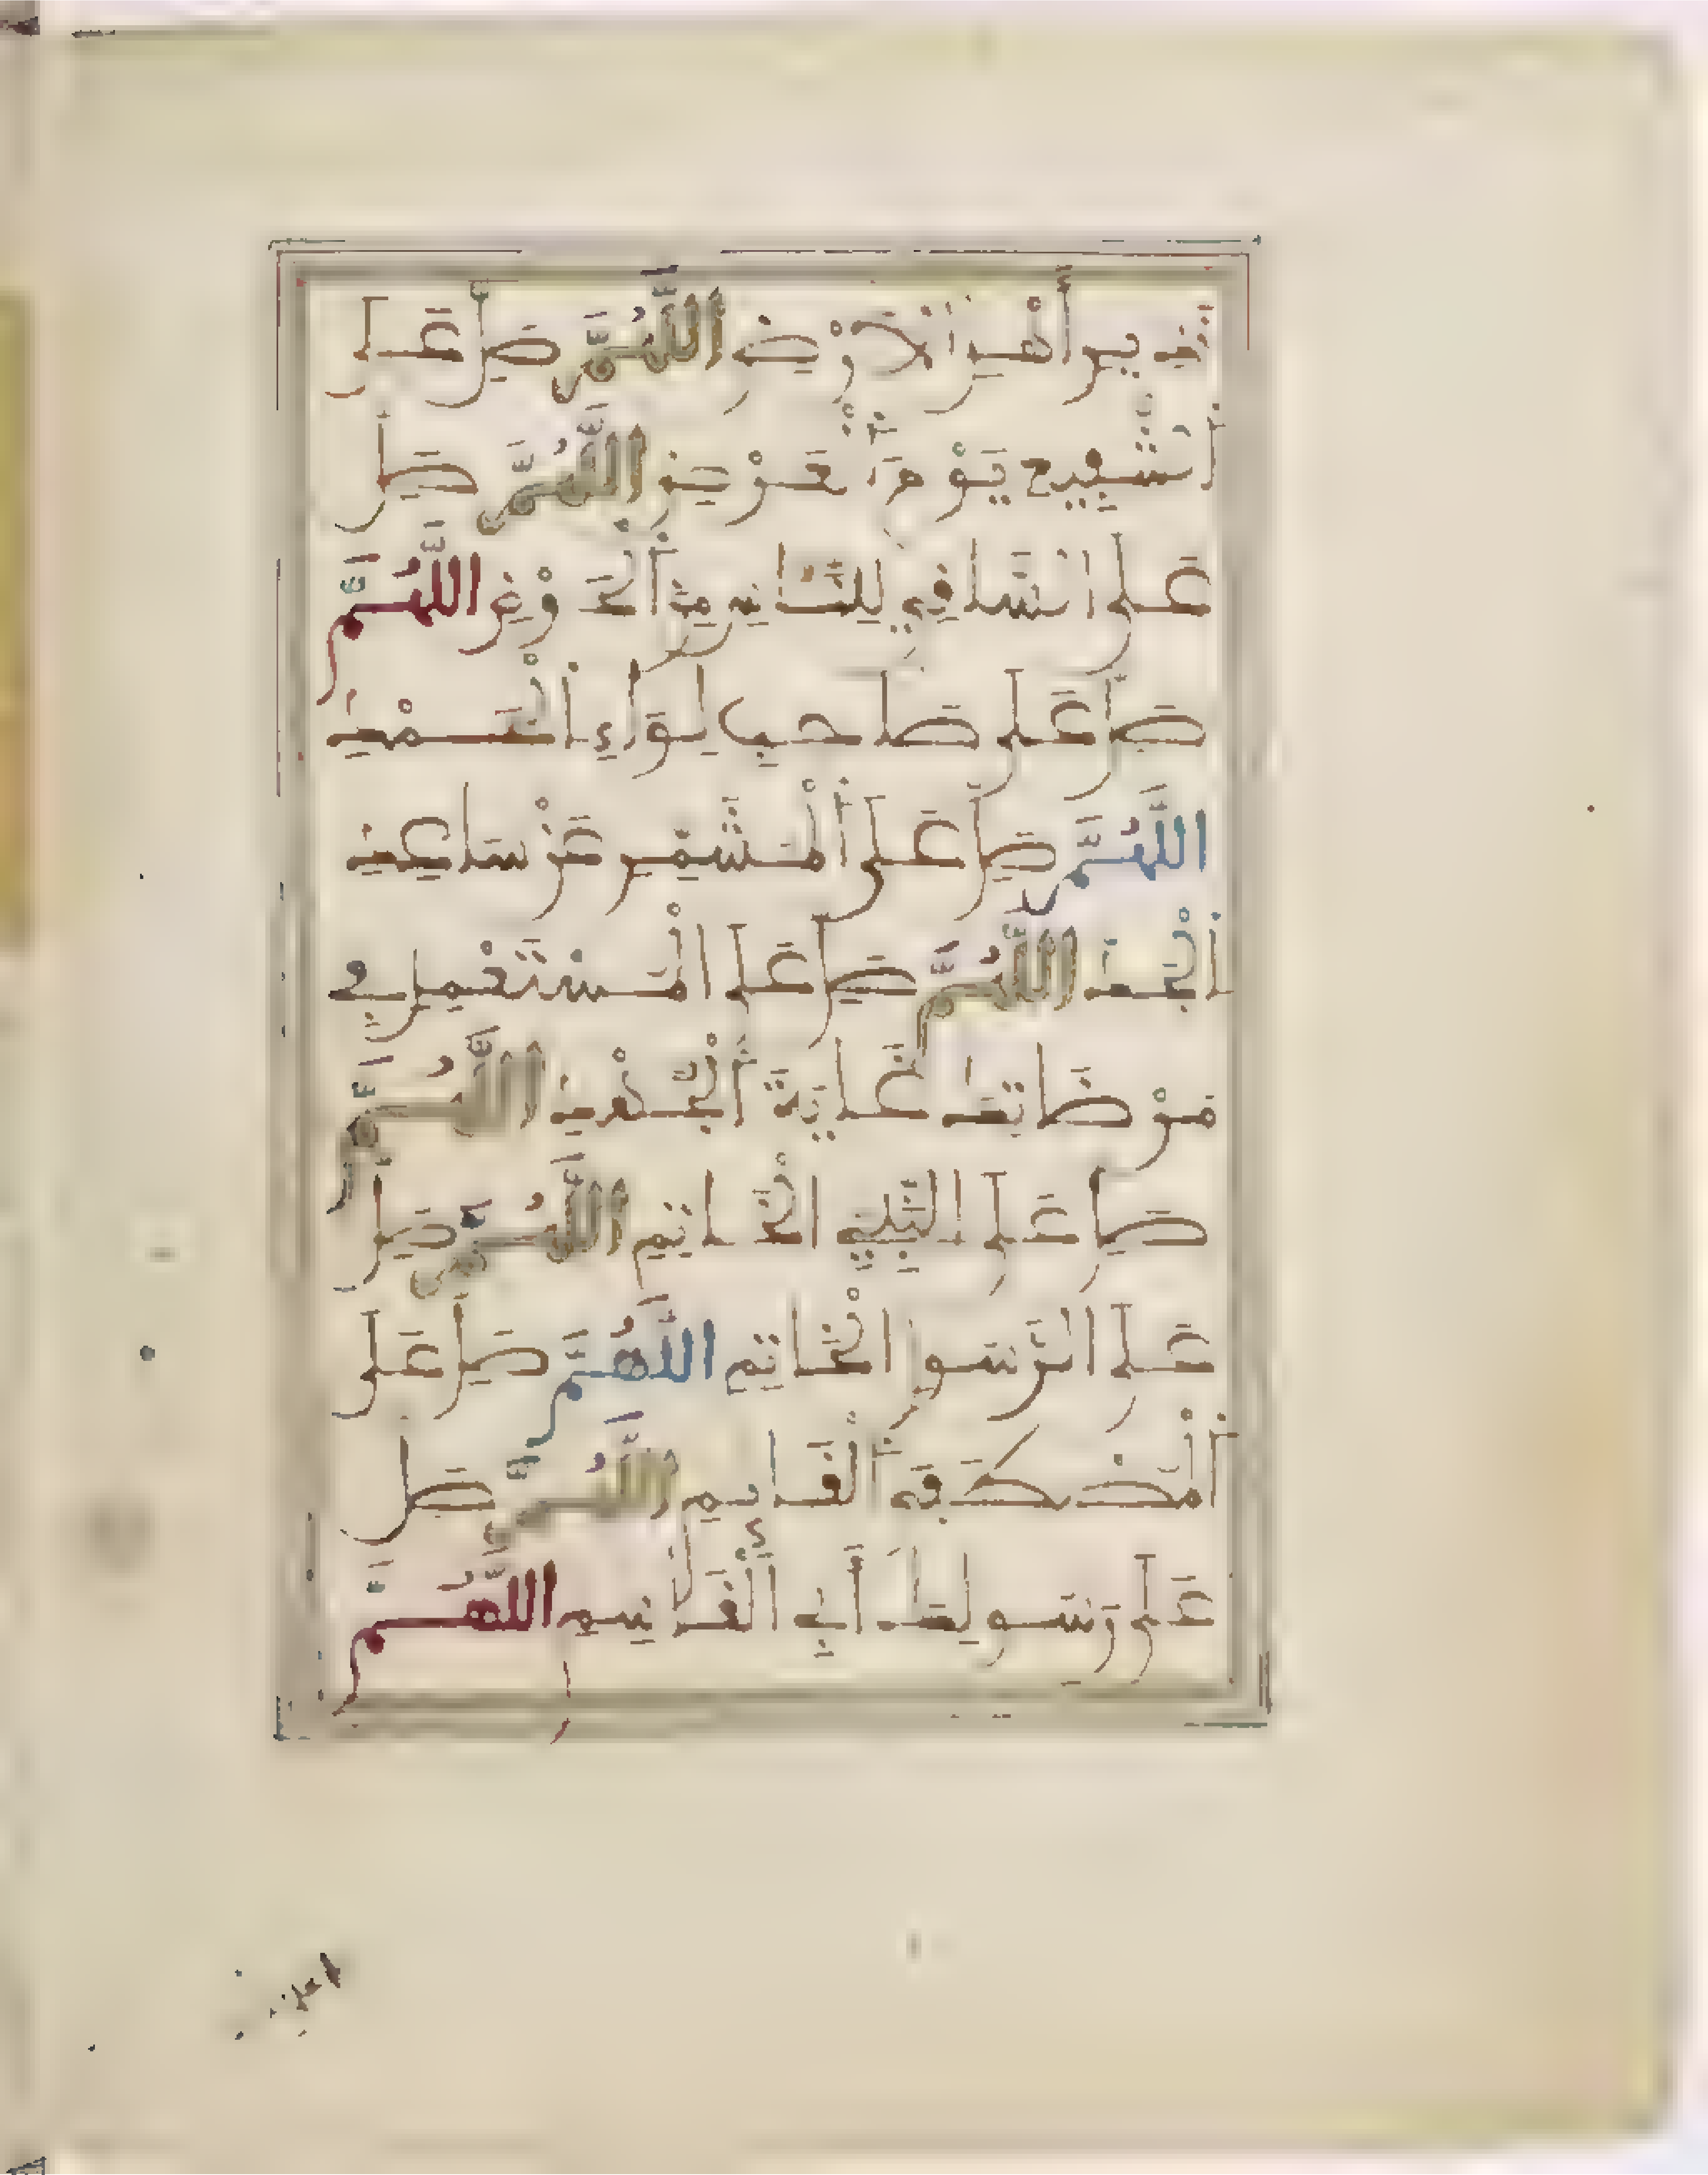 أهل الأرض اللهم صل على
الشفيع يوم العرض اللهم صل
على الساقي للناس من الحوض اللهم
صل على صاحب لواء الحمد
اللهم صل على المشمر عن ساعد
الجد اللهم صل على المستعمل في
مرضاتك غاية الجهد اللهم
صل على النبي الخاتم اللهم صل
على الرسول الخاتم اللهم صل على
المصطفى القائم اللهم صل
على رسولك أبي القاسم اللهم